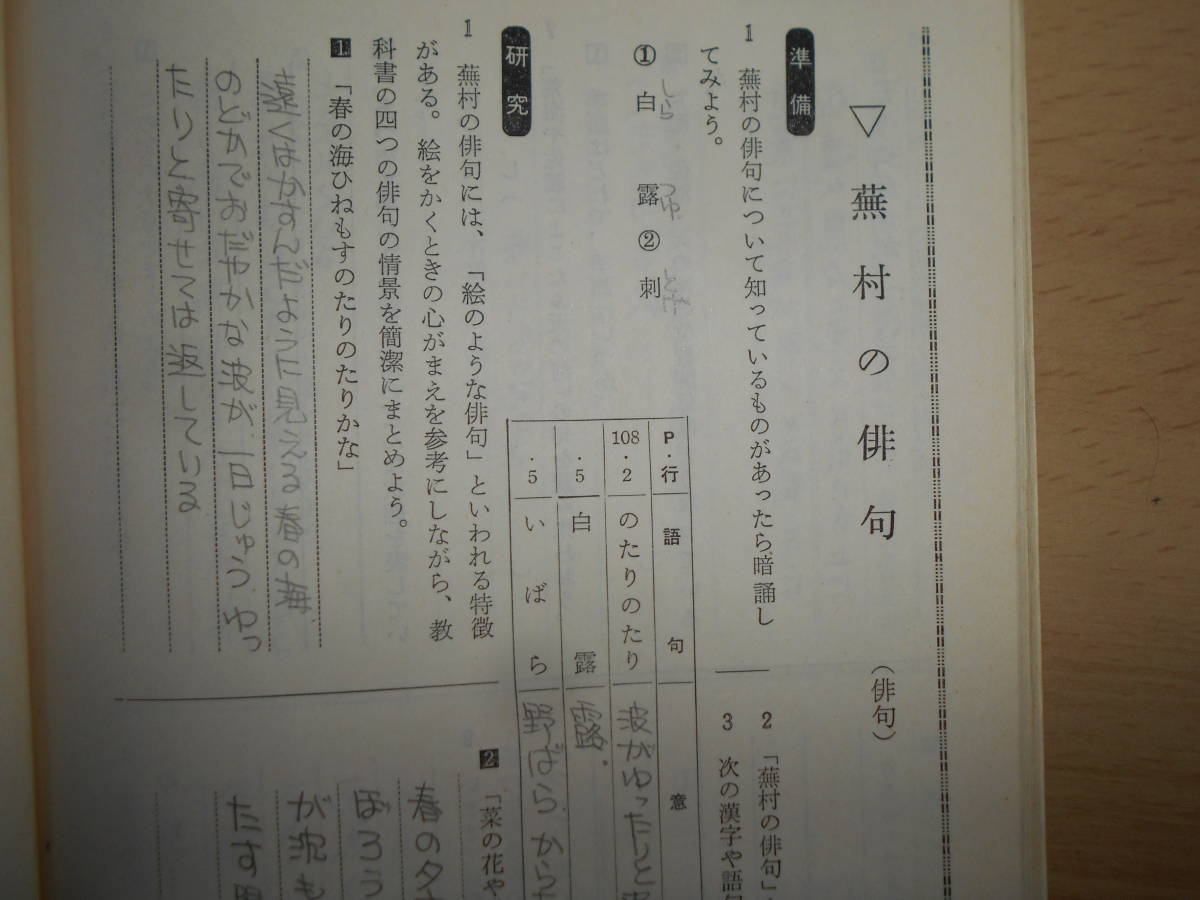 ▽ 蕪村の俳句
（俳句）
準備
1 蕪村の俳句について知っているものがあったら暗誦し
てみよう。
2 「蕪村の俳句」
3 次の漢字や語句
① 白露 ② 刺
しら つゆ とげ
P・行 語句 意
108・2 のたりのたり 波がゆったりと
・5 白露 露。
・5 いばら 野ばら、から
研究
1 蕪村の俳句には、「絵のような俳句」といわれる特徴
がある。絵をかくときの心がまえを参考にしながら、教
科書の四つの俳句の情景を簡潔にまとめよう。
1 「春の海ひねもすのたりのたりかな」
遠くはかすんだように見える春の海、
のどかでおだやかな波が、一日じゅう、ゆっ
たりと寄せては返している
2 「菜の花や
春の夕
ぼろう
が沈も
たす